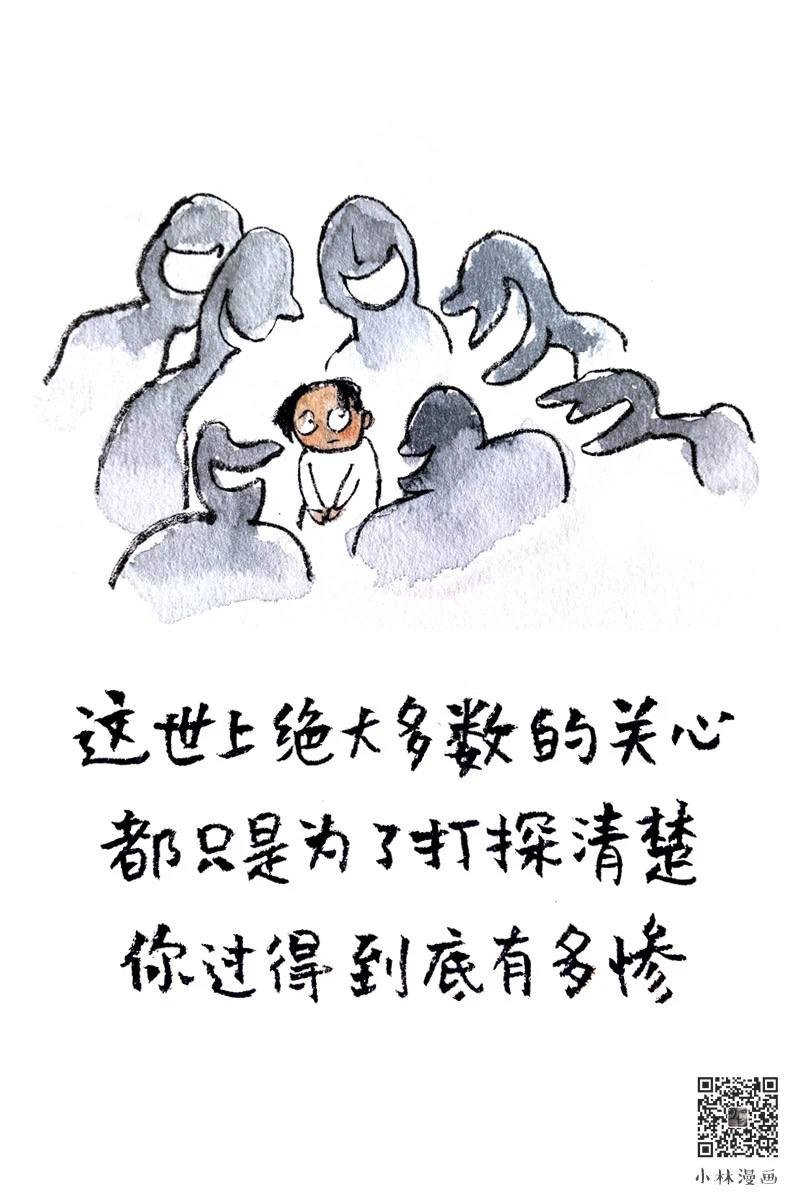 这世上绝大多数的关心
都只是为了打探清楚
你过得到底有多惨
小林漫画